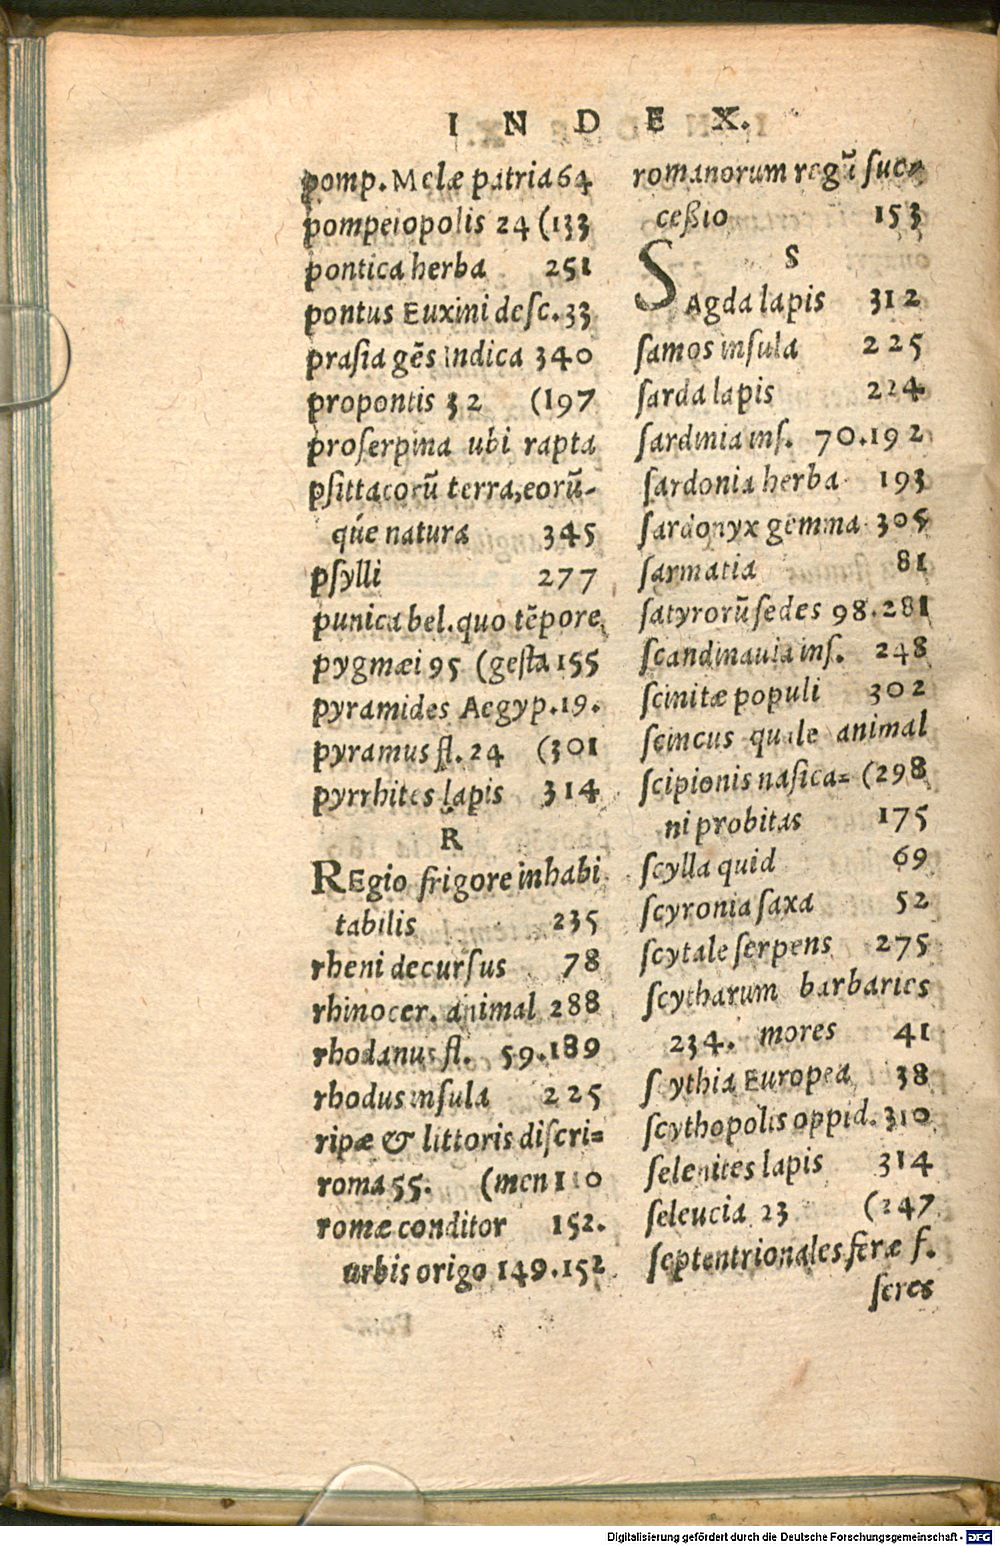 INDEX.
pomp. Melæ patria 64
pompeiopolis 24 (133
pontica herba 251
pontus Euxini desc. 33
prasia gēs indica 340
propontis 32 (197
proserpina ubi rapta
psittacorū terra, eorū-
qúe natura 345
psylli 277
punica bel. quo tēpore
pygmæi 95 (gesta 155
pyramides Aegyp. 19.
pyramus fl. 24 (301
pyrrhites lapis 314
R
REgio frigore inhabi
tabilis 235
rheni decursus 78
rhinocer. animal 288
rhodanus fl. 59.189
rhodus insula 225
ripæ & littoris discri=
roma 55. (men 110
romæ conditor 152.
urbis origo 149.152
romanorum regū suc=
ceßio 153
S
SAgda lapis 312
samos insula 225
sarda lapis 224
sardinia ins. 70.192
sardonia herba 193
sardonyx gemma 305
sarmatia 81
satyrorū sedes 98.281
scandinauia ins. 248
scinitæ populi 302
scincus quale animal
scipionis nasica= (298
ni probitas 175
scylla quid 69
scyronia saxa 52
scytale serpens 275
scytharum barbaries
234. mores 41
scythia Europea 38
scythopolis oppid. 310
selenites lapis 314
seleucia 23 (247
septentrionales feræ f.
seres
Digitalisierung gefördert durch die Deutsche Forschungsgemeinschaft - DFG